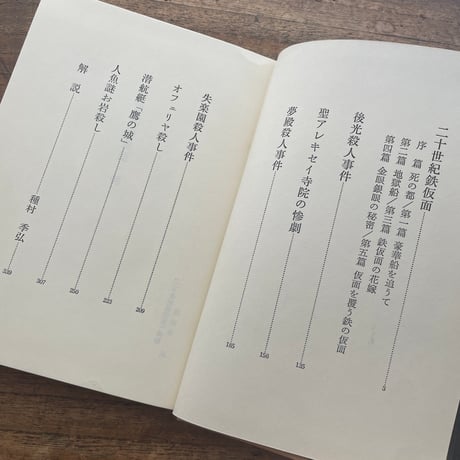 二十世紀鉄仮面
序篇 死の都/第一篇 豪華船を追うて
第二篇 地獄船/第三篇 鉄仮面の花嫁
第四篇 金眼銀眼の秘密/第五篇 仮面を覆う鉄の仮面 5
後光殺人事件 135
聖アレキセイ寺院の惨劇 156
夢殿殺人事件 185
失楽園殺人事件 209
オフェリヤ殺し 223
潜航艇「鷹の城」 250
人魚謎お岩殺し 307
解説 種村季弘 339